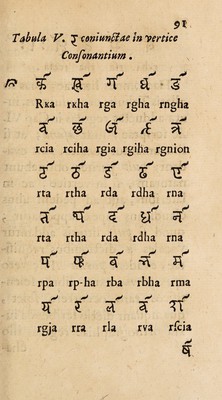 91
Tabula V. ɼ coniunctae in vertice
Consonantium.
र्क र्ख र्ग र्घ र्ङ
Rκa rκha rga rgha rngha
र्च र्छ र्ज र्झ र्ञ
rcia rciha rgia rgiha rgnion
र्ट र्ठ र्ड र्ढ र्ण
rta rtha rda rdha rna
र्त र्थ र्द र्ध र्न
rta rtha rda rdha rna
र्प र्फ र्ब र्भ र्म
rpa rp-ha rba rbha rma
र्य र्र र्ल र्व र्श
rgja rra rla rva rſcia
र्ष